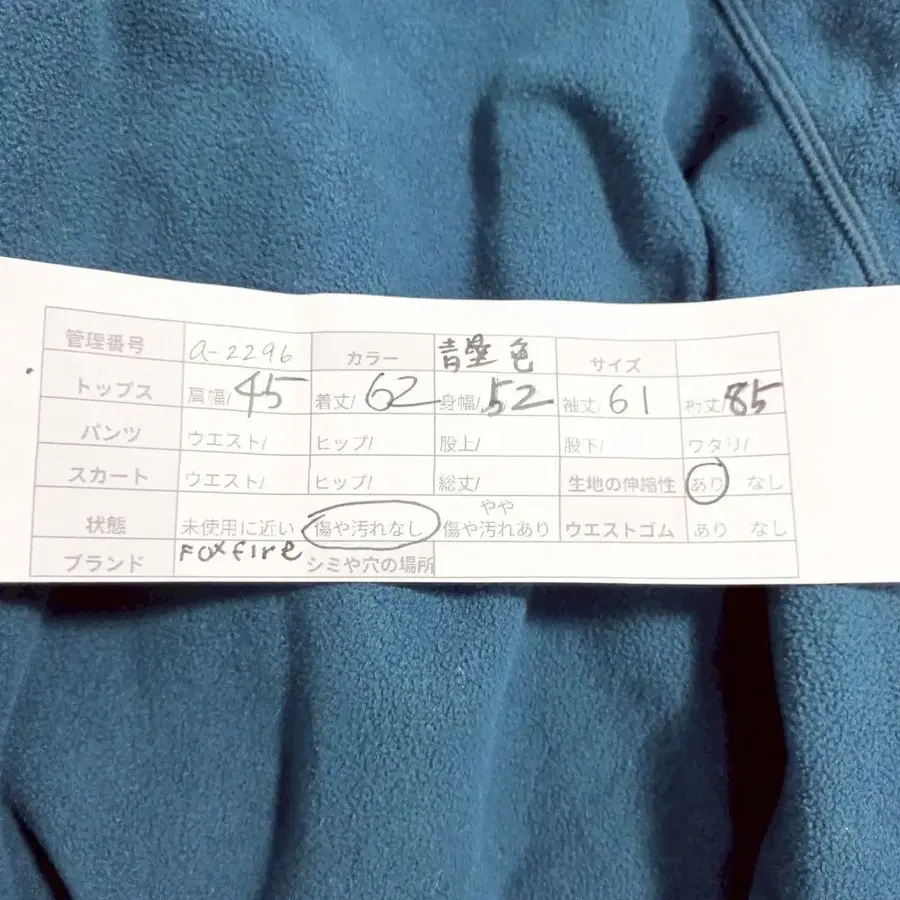 管理番号 a-2296 カラー 青 色 サイズ
トップス 肩幅/45 着丈/62 身幅/52 袖丈/61 裄丈/85
パンツ ウエスト/ ヒップ/ 股上/ 股下/ ワタリ/
スカート ウエスト/ ヒップ/ 総丈/ 生地の伸縮性 あり なし
状態 未使用に近い 傷や汚れなし やや傷や汚れあり ウエストゴム あり なし
ブランド Foxfire シミや穴の場所